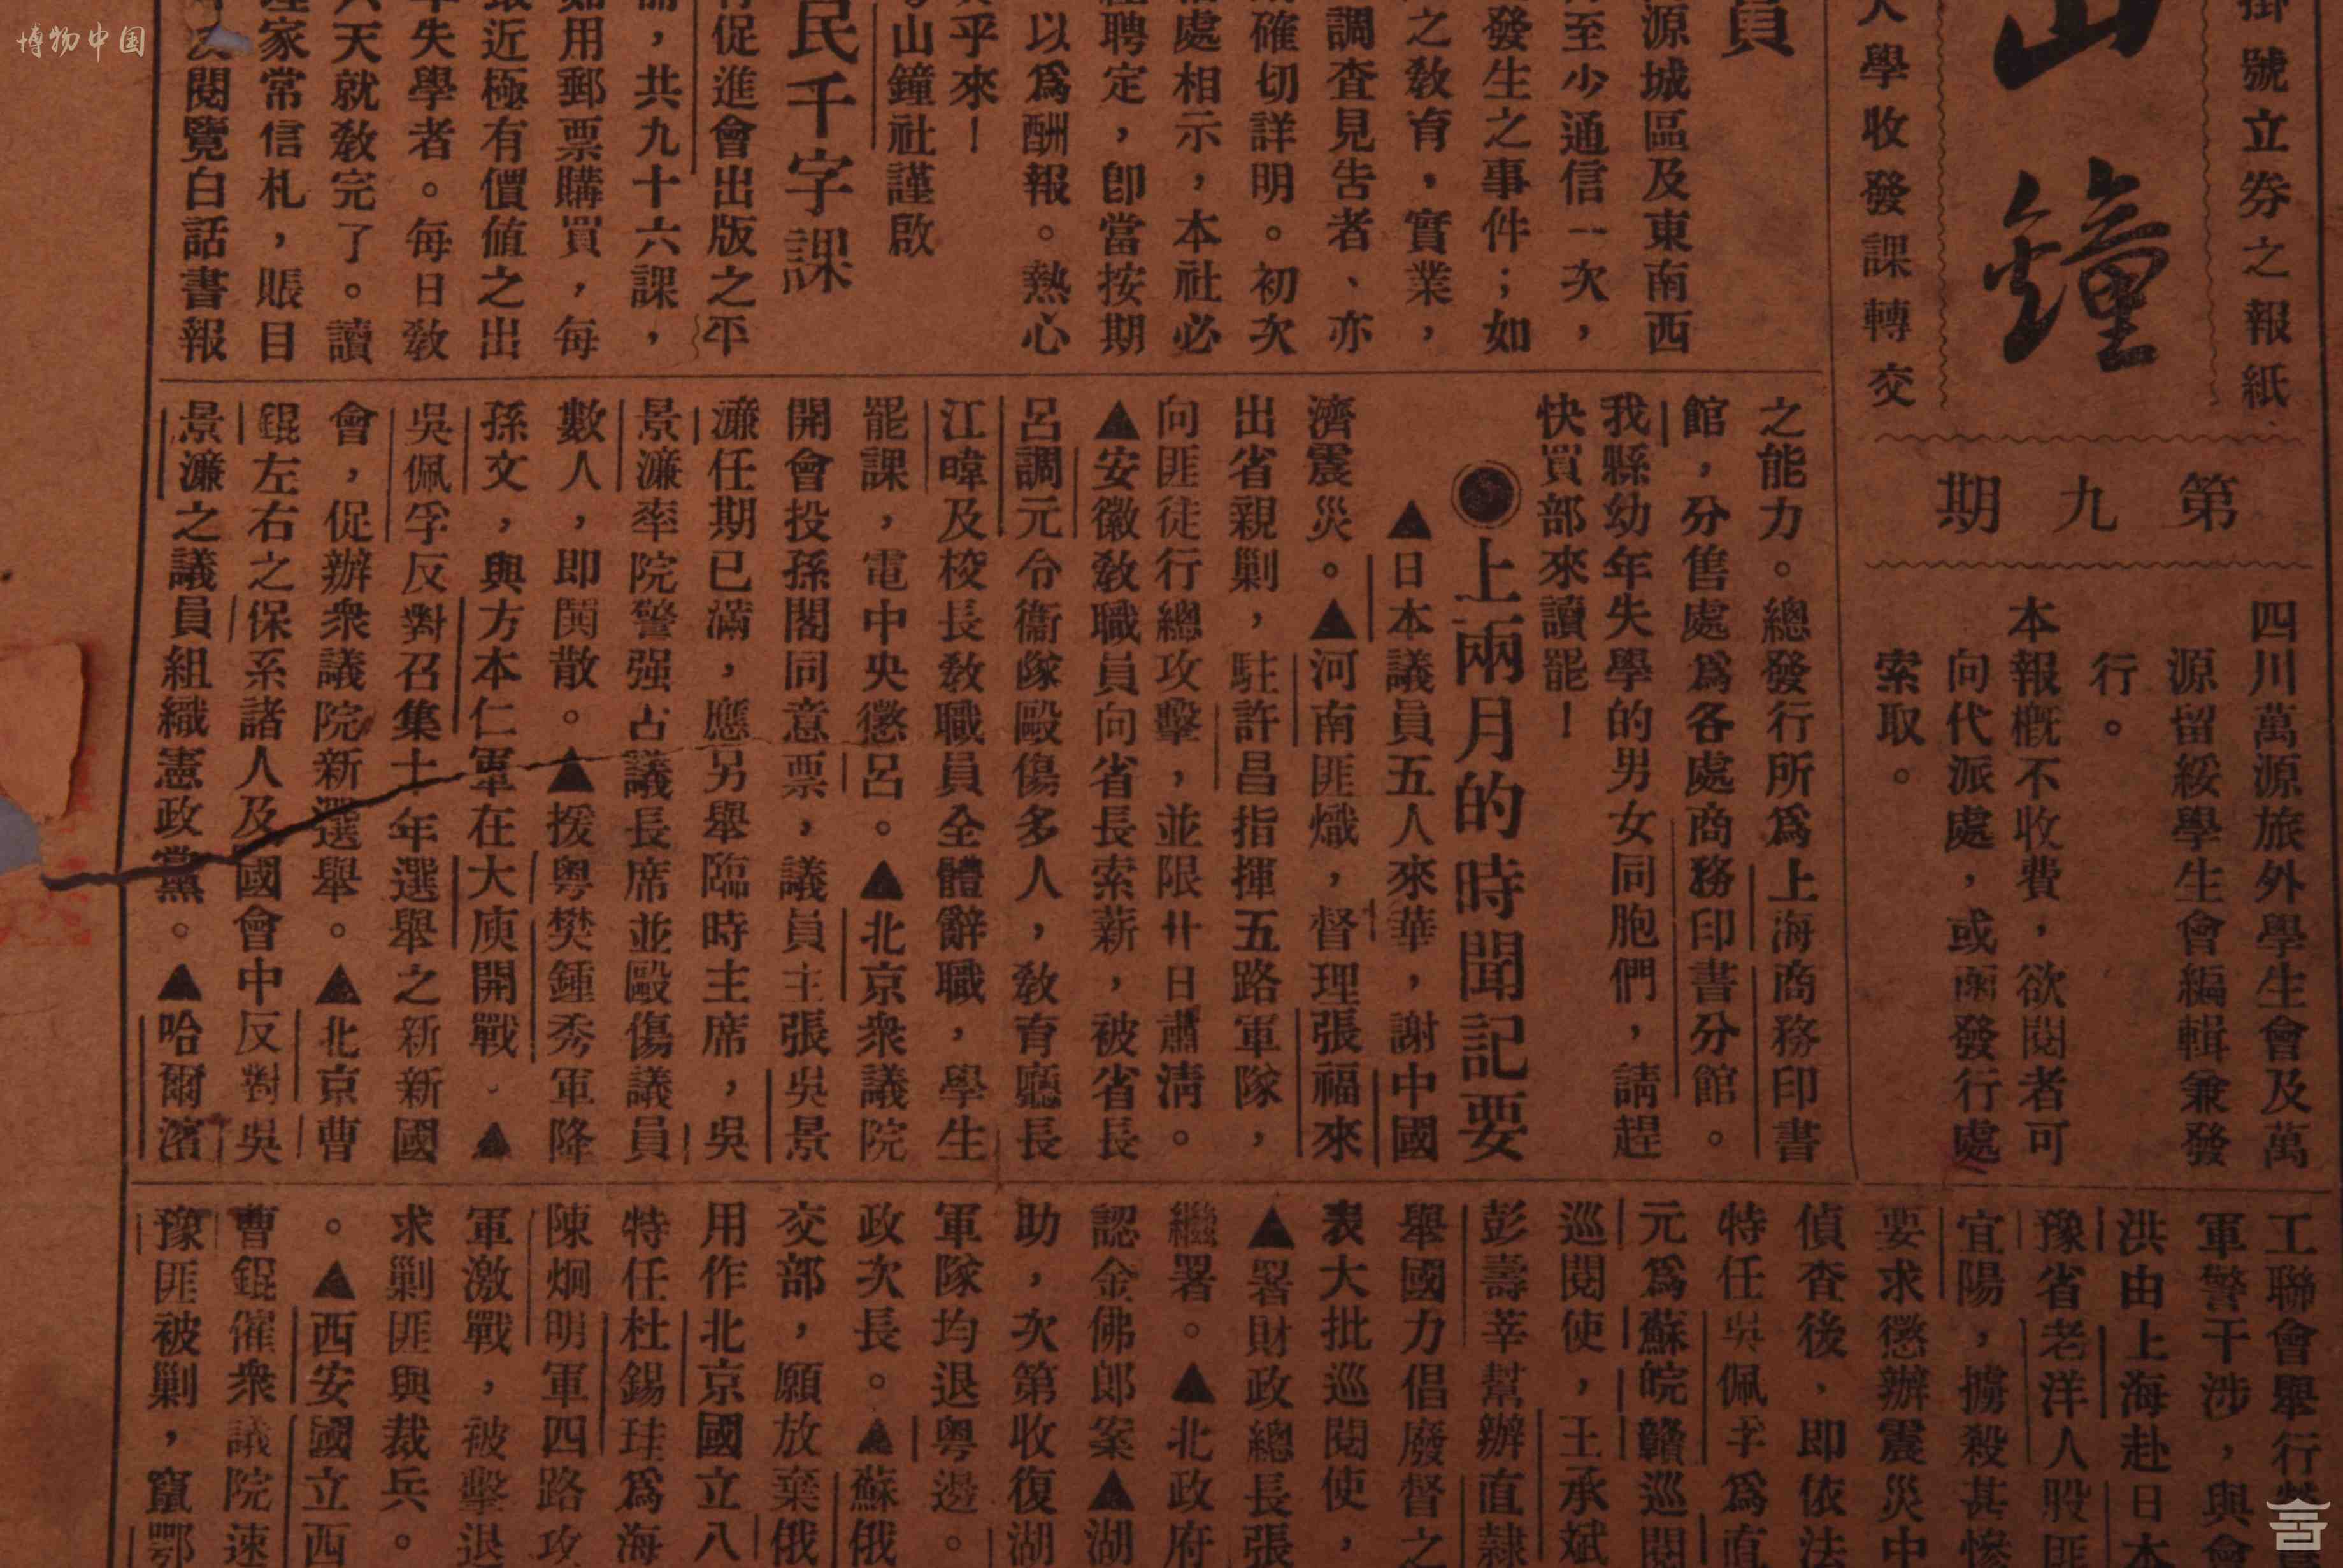 博物中国
掛號立券之報紙
山鐘
大學收發課轉交
第九期
四川萬源旅外學生會及萬
源留綏學生會編輯兼發
行。
本報概不收費，欲閱者可
向代派處，或函發行處
索取。
員
源城區及東南西
至少通信一次，
發生之事件；如
之教育，實業，
調查見告者、亦
確切詳明。初次
處相示，本社必
聘定，卽當按期
以爲酬報。熱心
乎來！
山鐘社謹啟
民千字課
促進會出版之平
，共九十六課，
如用郵票購買，每
最近極有價値之出
失學者。每日敎
天就敎完了。讀
家常信札，賬目
閱覽白話書報
之能力。總發行所爲上海商務印書
館，分售處爲各處商務印書分館。
我縣幼年失學的男女同胞們，請趕
快買部來讀罷！
上兩月的時聞記要
▲日本議員五人來華，謝中國
濟震災。▲河南匪熾，督理張福來
出省親剿，駐許昌指揮五路軍隊，
向匪徒行總攻擊，並限廿日肅清。
▲安徽敎職員向省長索薪，被省長
呂調元令衞隊毆傷多人，敎育廳長
江暐及校長敎職員全體辭職，學生
罷課，電中央懲呂。▲北京衆議院
開會投孫閣同意票，議員主張吳景
濂任期已滿，應另舉臨時主席，吳
景濂率院警强占議長席並毆傷議員
數人，即鬨散。▲援粵樊鍾秀軍降
孫文，與方本仁軍在大庾開戰。▲
吳佩孚反對召集十年選舉之新新國
會，促辦衆議院新選舉。▲北京曹
錕左右之保系諸人及國會中反對吳
景濂之議員組織憲政黨。▲哈爾濱
工聯會舉行
軍警干涉，與會
洪由上海赴日本
豫省老洋人股匪
宜陽，擄殺甚慘
要求懲辦震災中
偵查後，即依法
特任吳佩孚爲直
元爲蘇皖贛巡閱
巡閱使，王承斌
彭壽莘幫辦直隸
舉國力倡廢督之
表大批巡閱使，
▲署財政總長張
繼署。▲北政府
認金佛郎案▲湖
助，次第收復湖
軍隊均退粵邊。
政次長。▲蘇俄
交部，願放棄俄
用作北京國立八
特任杜錫珪爲海
陳炯明軍四路攻
軍激戰，被擊退
求剿匪與裁兵。
。▲西安國立西
曹錕催衆議院速
豫匪被剿，竄鄂